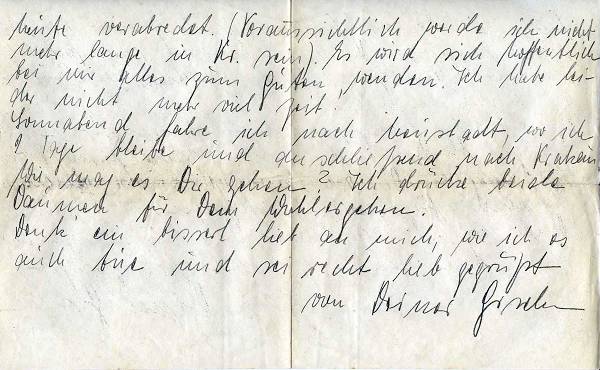 heute verabredet. (Voraussichtlich werde ich nicht
mehr lange in Kr. sein). Es wird sich hoffentlich
bei mir alles zum Guten wenden. Ich habe lei-
der nicht mehr viel Zeit.
Sonnabend fahre ich nach Neustadt, wo ich
2 Tage bleibe und anschließend nach Krakau
Wie mag es Dir gehen? Ich drücke beide
Daumen für Dein Wohlergehen.
Denk ein bisserl lieb an mich, wie ich es
auch tue und sei recht lieb gegrüßt
von Deiner